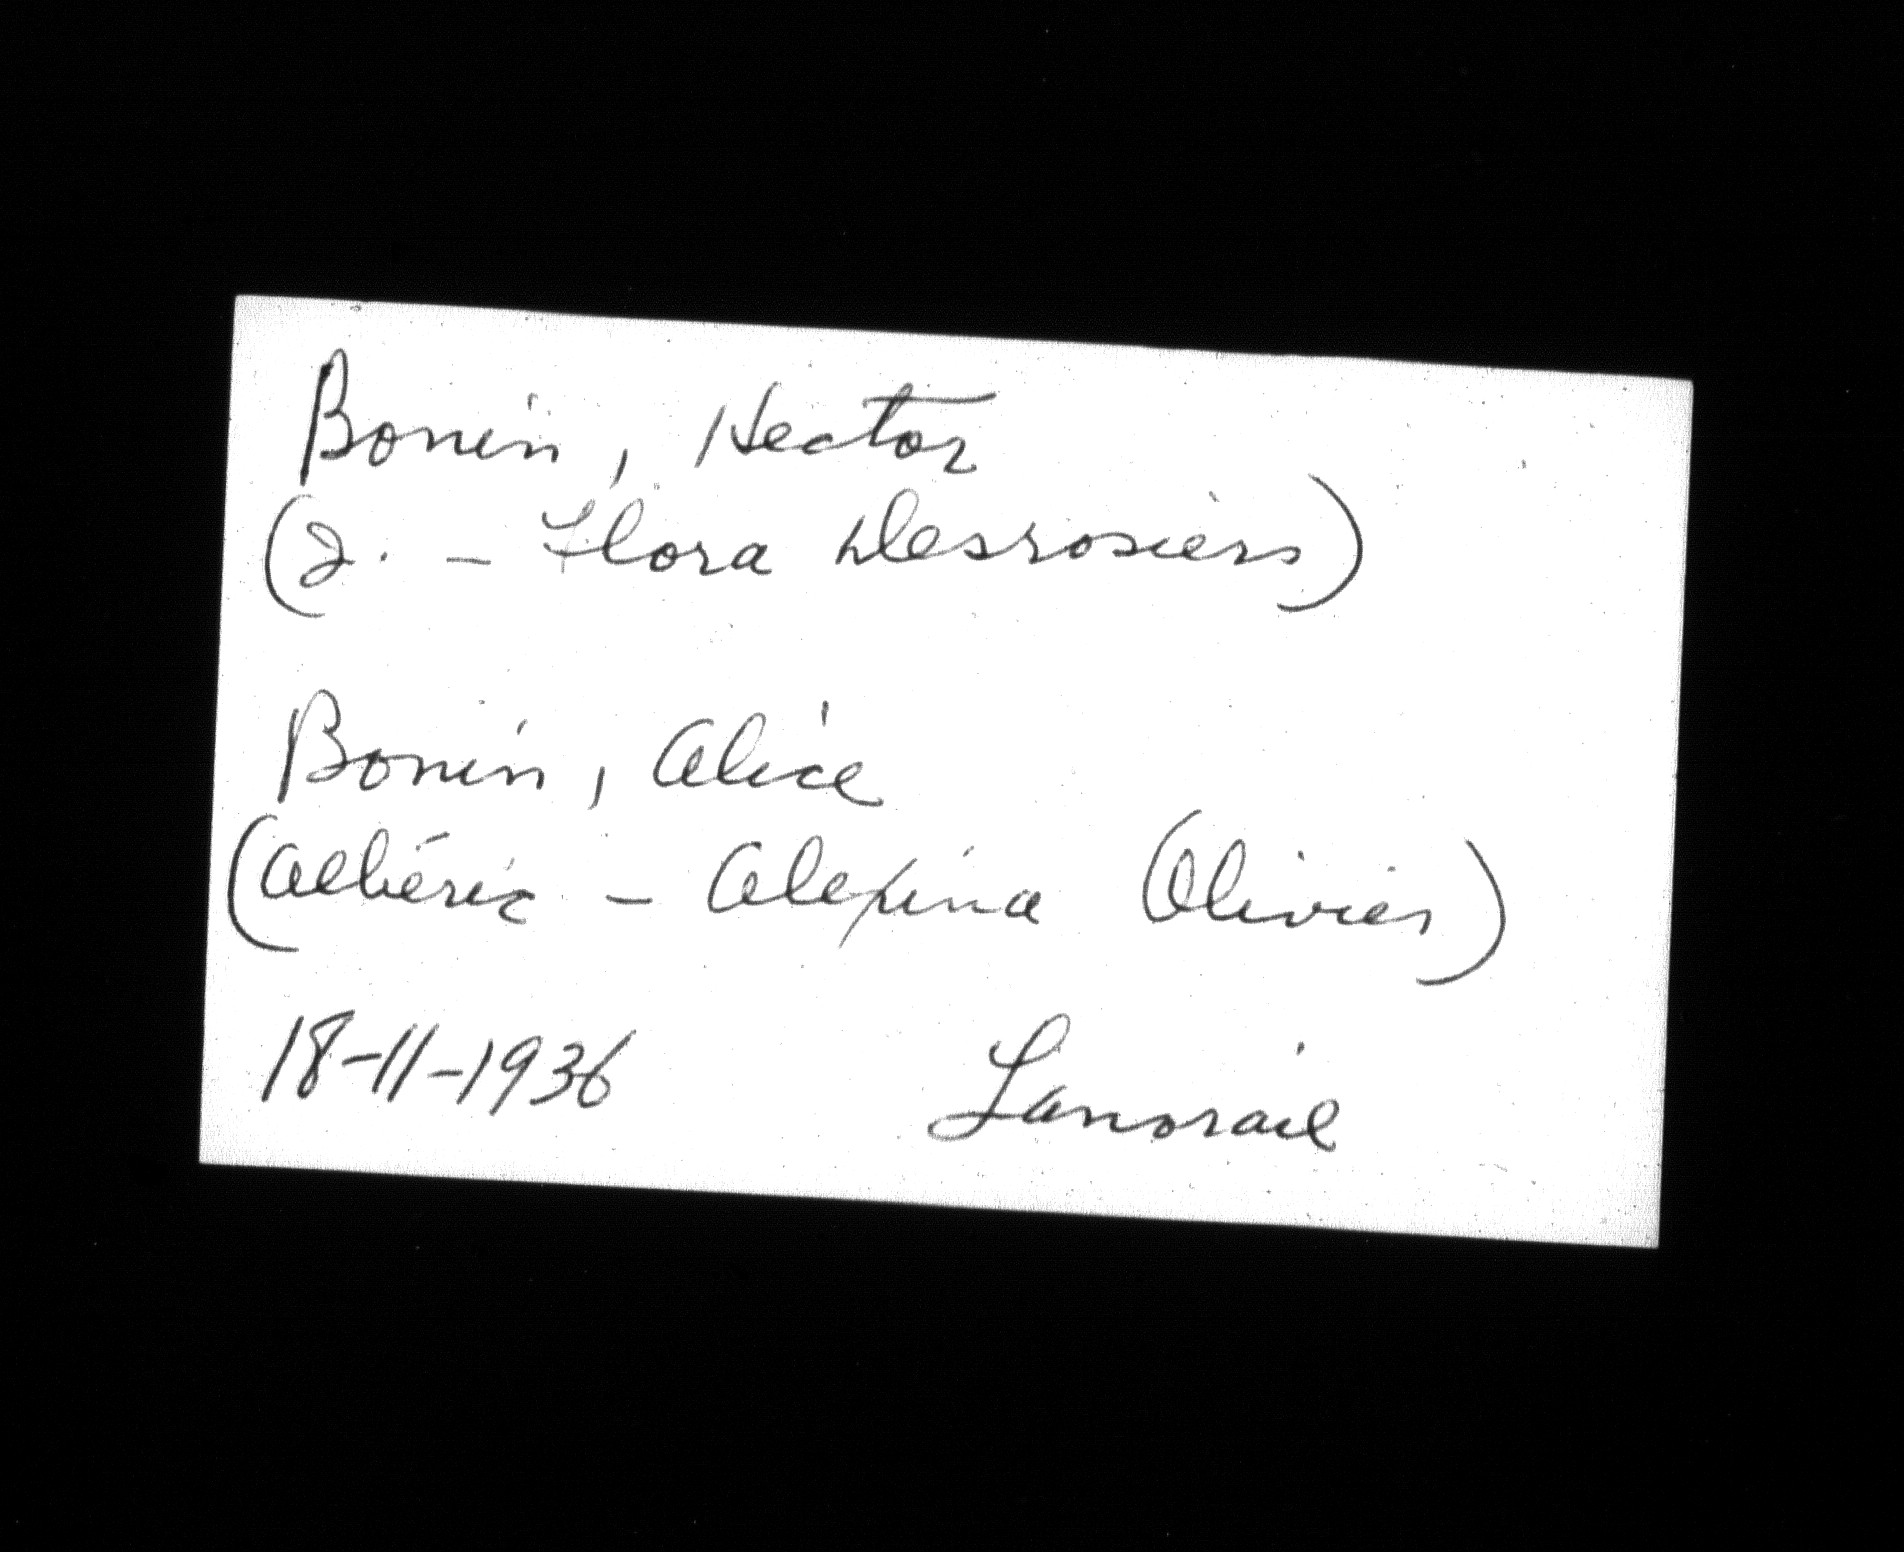 Bonin, Hector
(J. - Flora Desrosiers)
Bonin, Alice
(Albéric - Alexina Olivier)
18-11-1936 Lanoraie